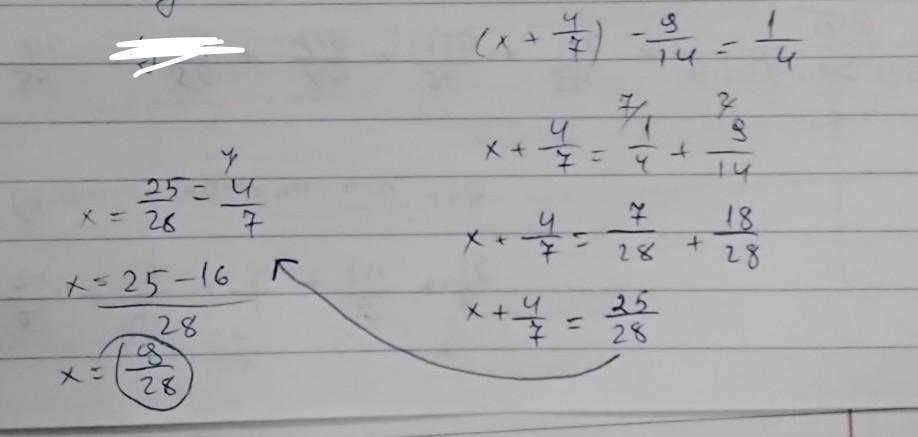 (x + 4/7) - 9/14 = 1/4
x + 4/7 = 7/ 1/4 + 2/ 9/14
x + 4/7 = 7/28 + 18/28
x + 4/7 = 25/28
x = 25/28 = 4/ 4/7
x = 25 - 16 / 28
x = 9/28